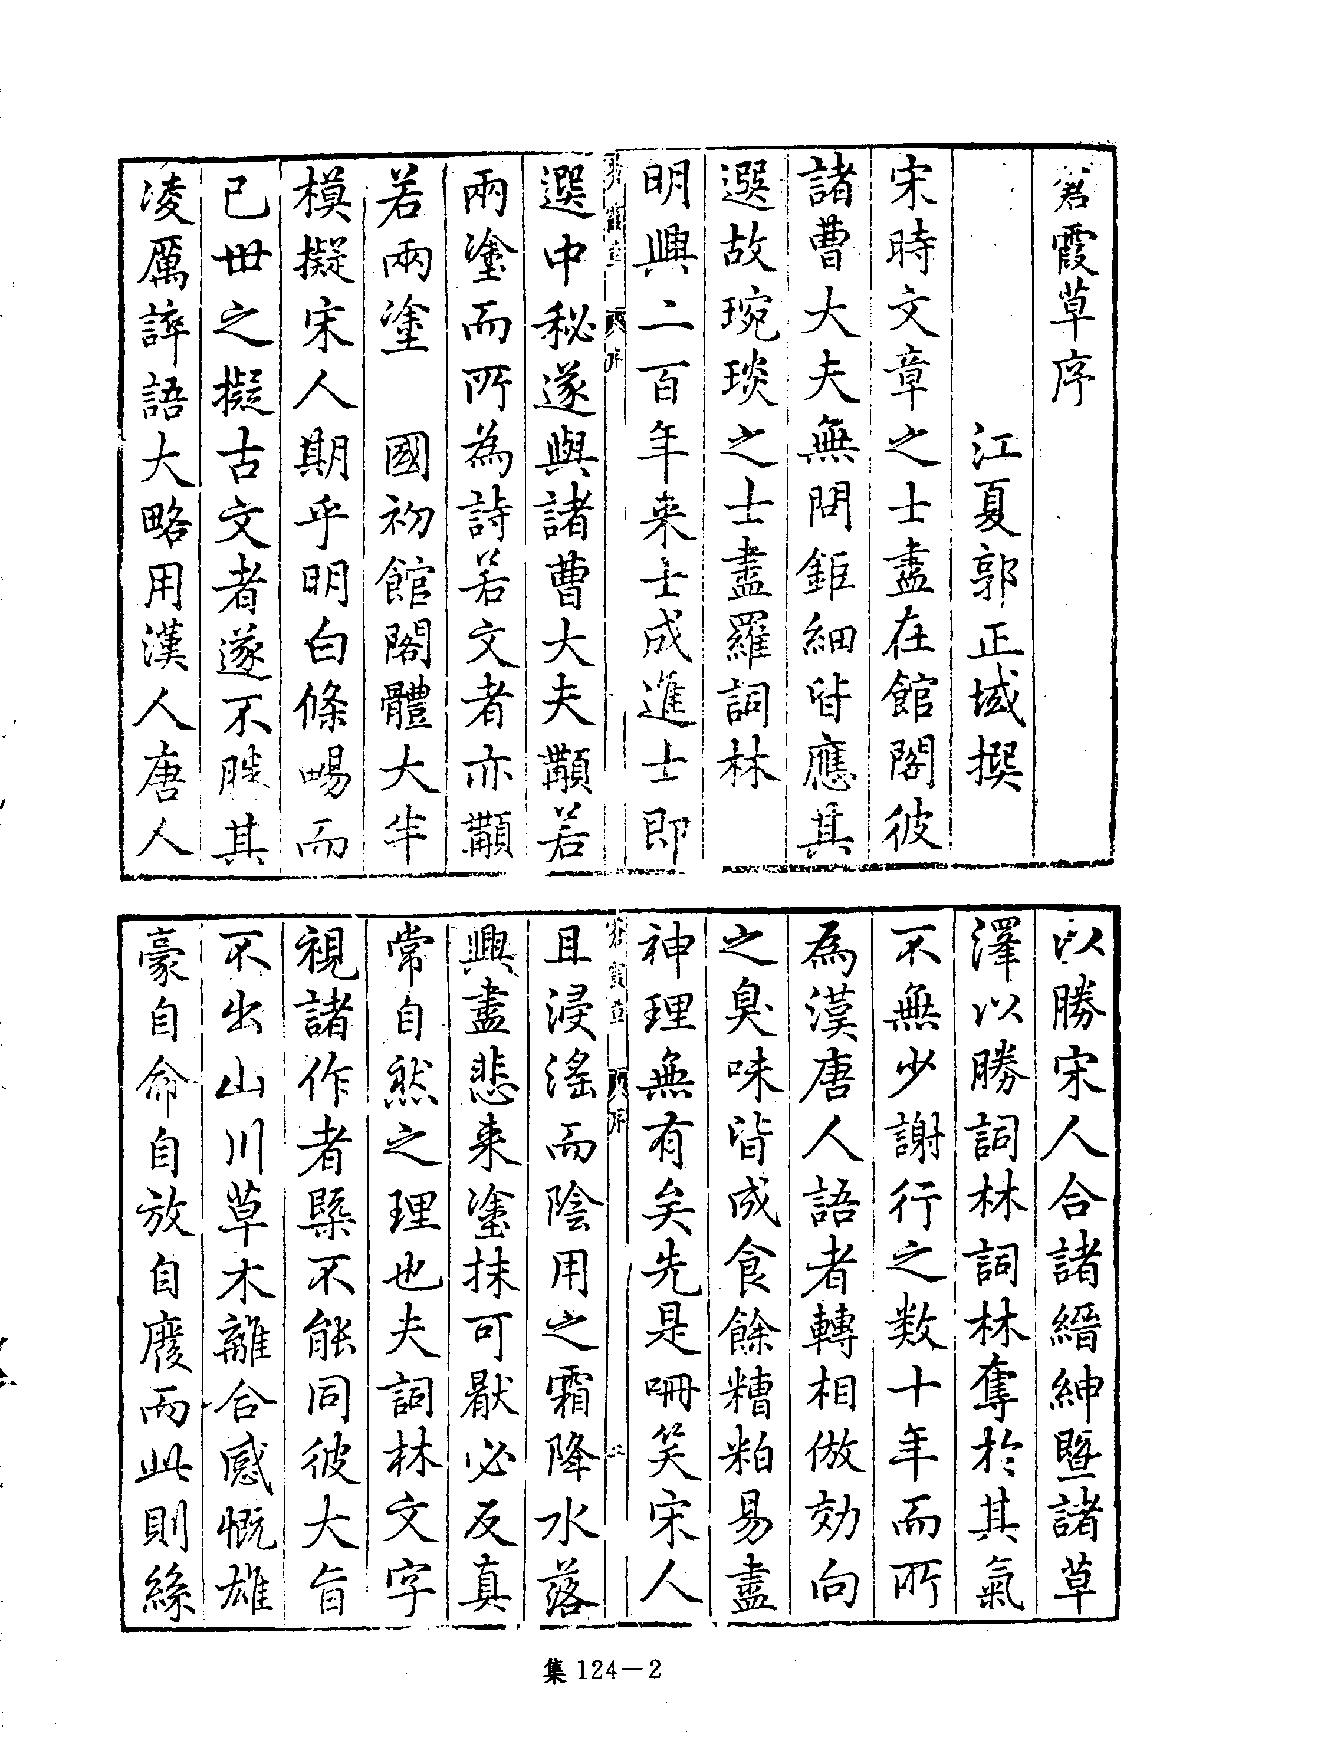 蒼霞草序
江夏郭正域撰
宋時文章之士盡在館閣彼
諸曹大夫無問鉅細皆應其
選故琬琰之士盡羅詞林
明興二百年来士成進士即
選中秘遂與諸曹大夫顢若
兩塗而所為詩若文者亦顢
若兩塗 國初館閣體大半
模擬宋人期乎明白條暢而
已世之擬古文者遂不勝其
凌厲誶語大略用漢人唐人
以勝宋人合諸縉紳暨諸草
澤以勝詞林詞林奪於其氣
不無少謝行之数十年而所
為漢唐人語者轉相倣効向
之臭味皆成食餘糟粕易盡
神理無有矣先是哂笑宋人
且浸淫而陰用之霜降水落
興盡悲来塗抹可厭必反真
常自然之理也夫詞林文字
視諸作者槩不能同彼大旨
不出山川草木離合感慨雄
豪自命自放自廢而此則絲
集 124－2